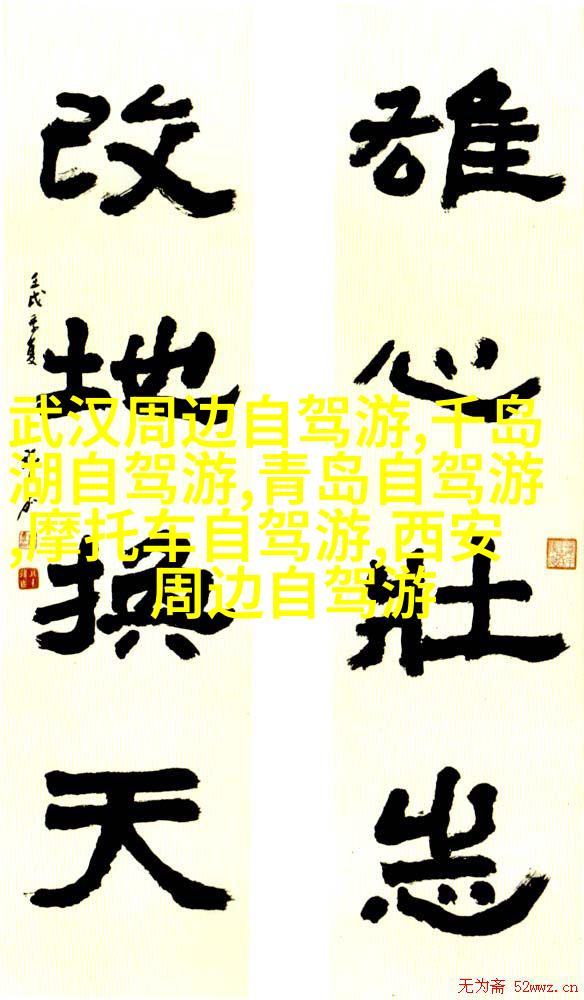 雄心壮志
改地换天
壬戌
武汉周边自驾游,千岛
湖自驾游,青岛自驾游
,摩托车自驾游,西安
周边自驾游
无为斋 52wwz.cn